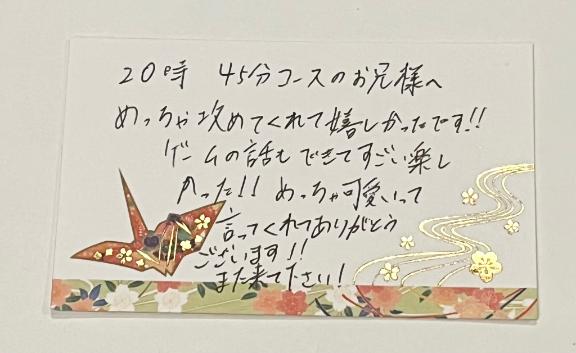 20時 45分コースのお兄様へ
めっちゃ攻めてくれて嬉しかったです!!
ゲームの話もできてすごい楽し
かった!! めっちゃ可愛いって
言ってくれてありがとう
ございます!!
また来て下さい!